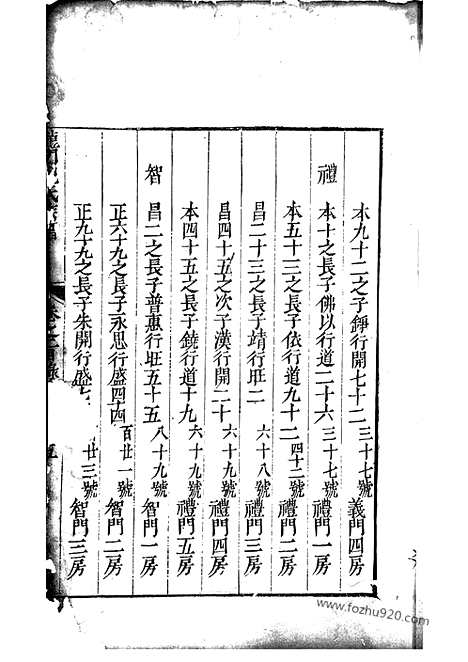 本九十二之子錚行開七十二 三十七號 義門四房
禮 本十之長子佛以行道二十六 三十七號 禮門一房
本五十三之長子依行道九十二 四十三號 禮門二房
昌二十三之長子靖行旺二 六十八號 禮門三房
昌四十五之次子漢行開二十 六十九號 禮門四房
本四十五之長子鐃行道十九 六十九號 禮門五房
智 昌二之長子普惠行旺五十五 八十九號 智門一房
正六十九之長子永思行盛四十四 百廿一號 智門二房
正九十九之長子朱開行盛七 廿三號 智門三房
五
www.fozhu920.com